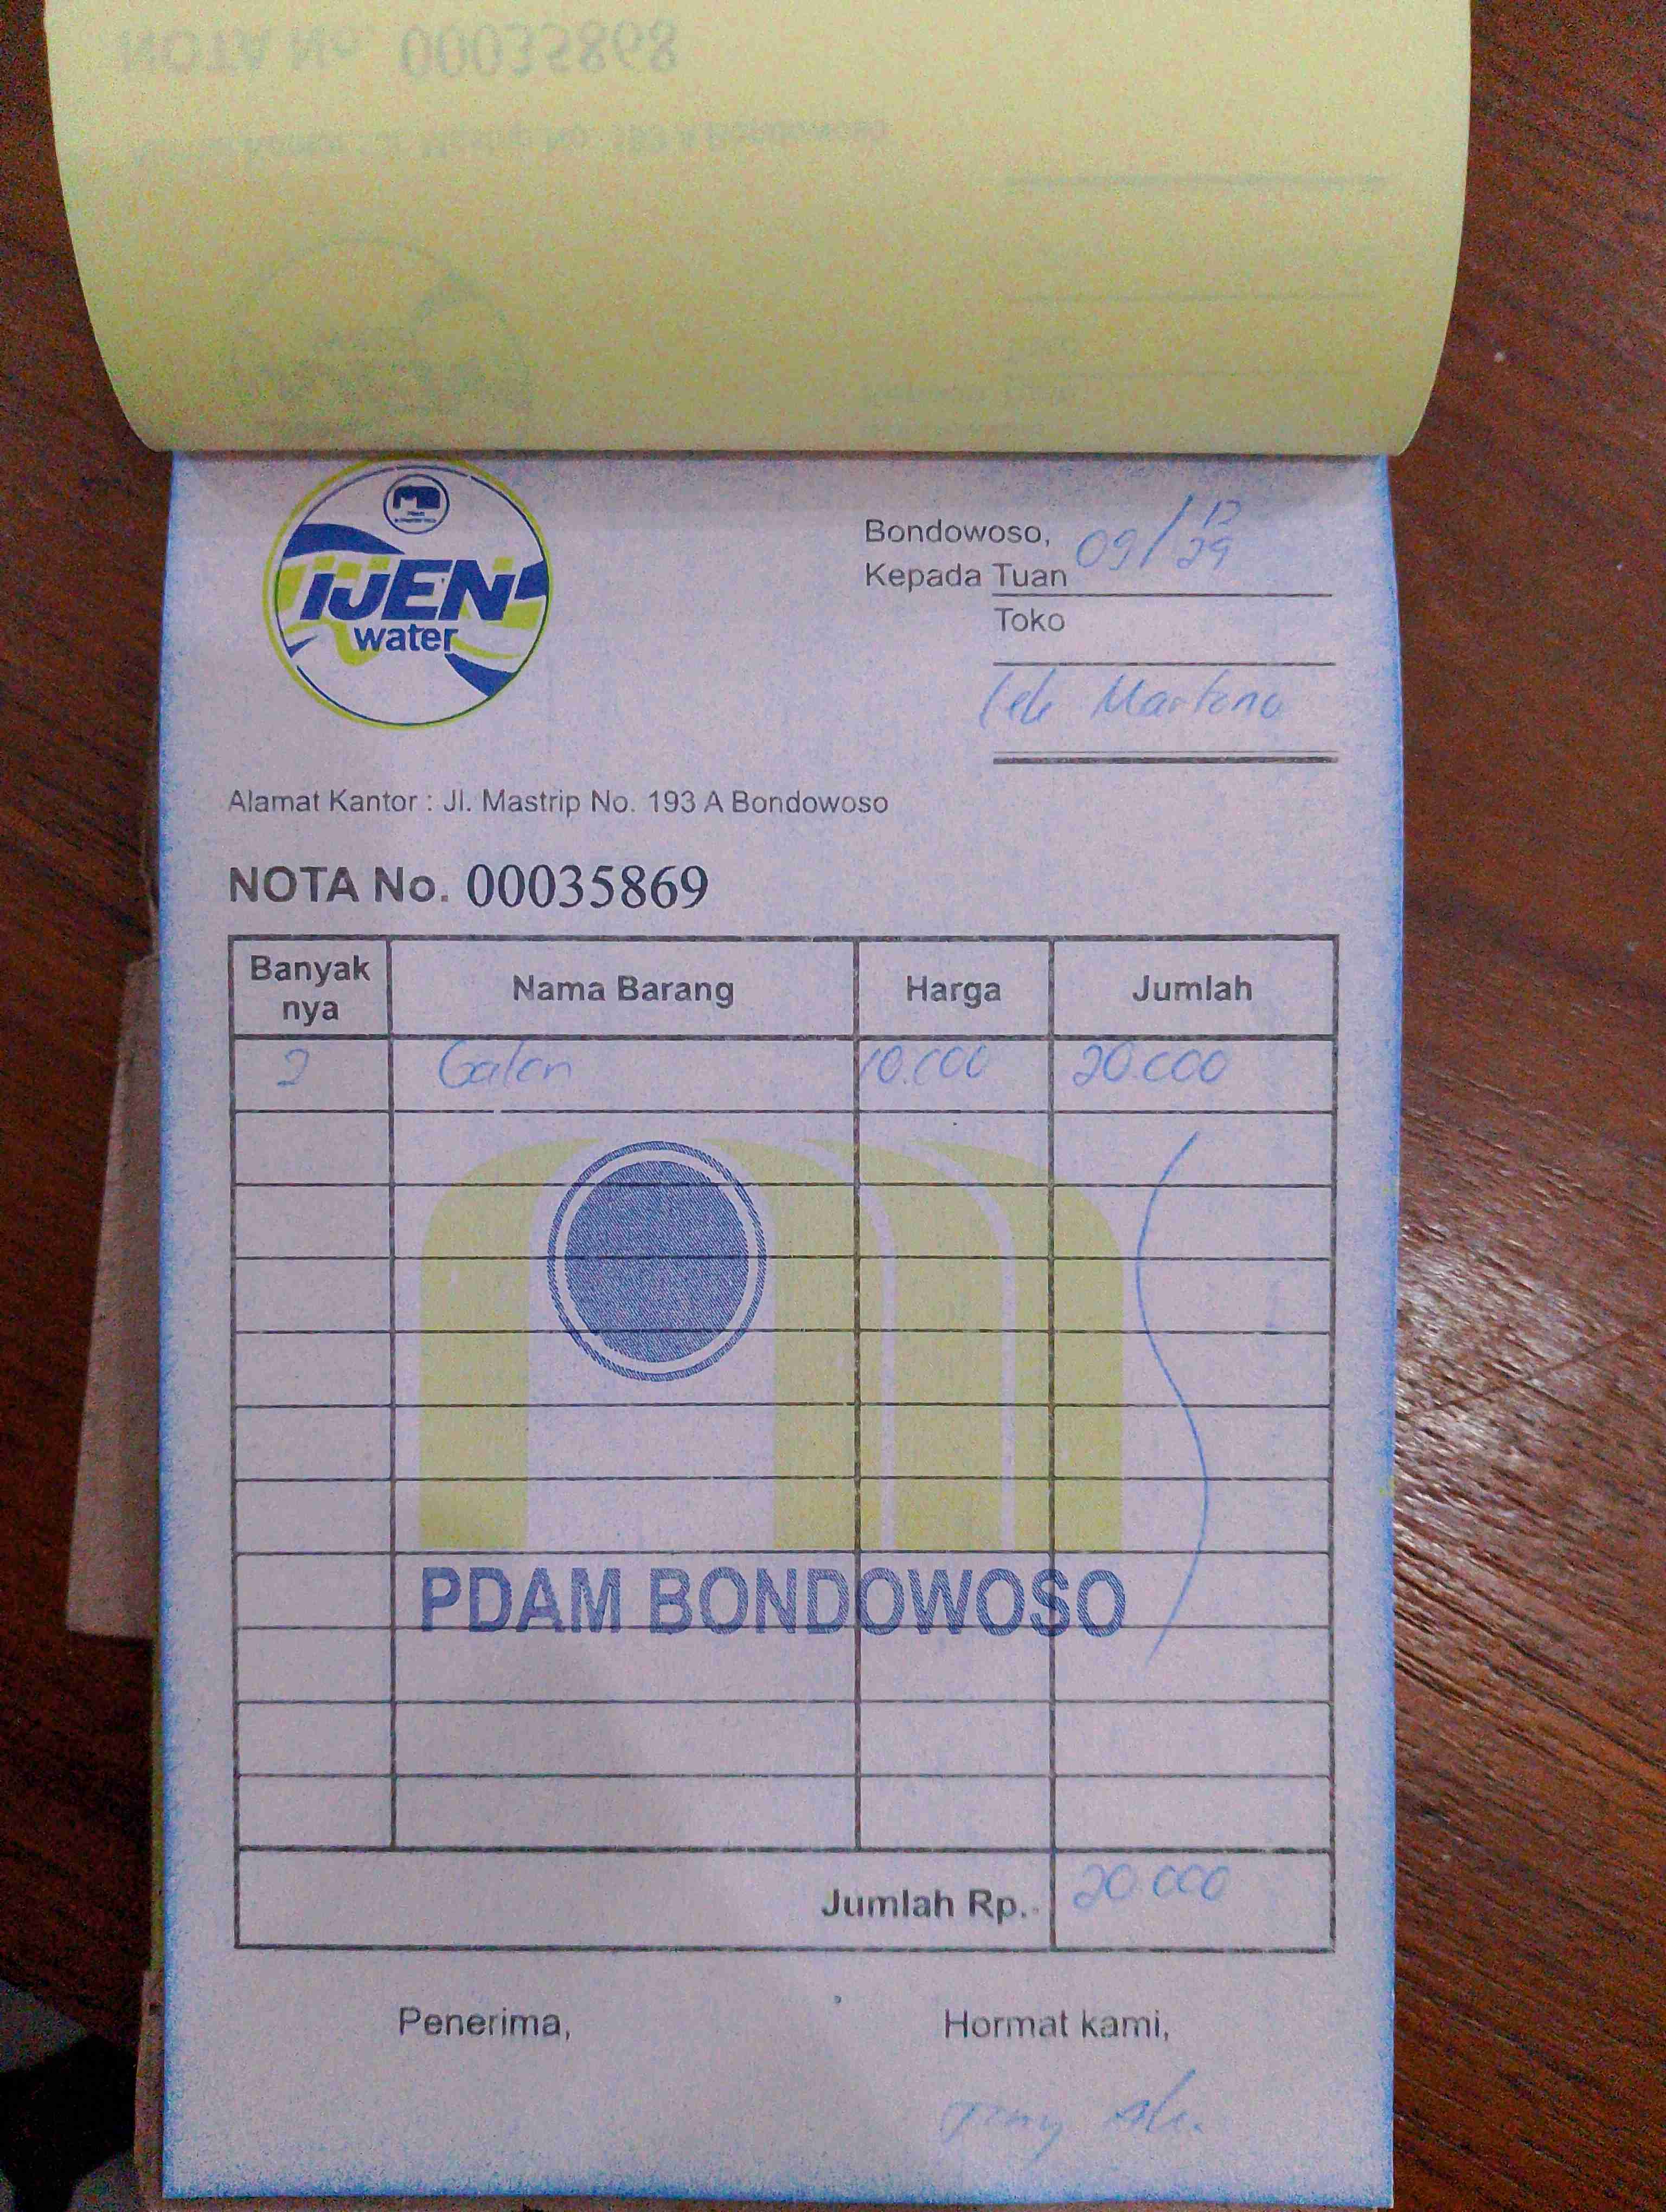 NOTA No. 00035868
IJEN
water
Bondowoso, 09/12
Kepada Tuan
Toko
Martono
Alamat Kantor : Jl. Mastrip No. 193 A Bondowoso
NOTA No. 00035869
Banyak nya Nama Barang Harga Jumlah
2 Galon 10.000 20.000
PDAM BONDOWOSO
Jumlah Rp. 20.000
Penerima, Hormat kami,